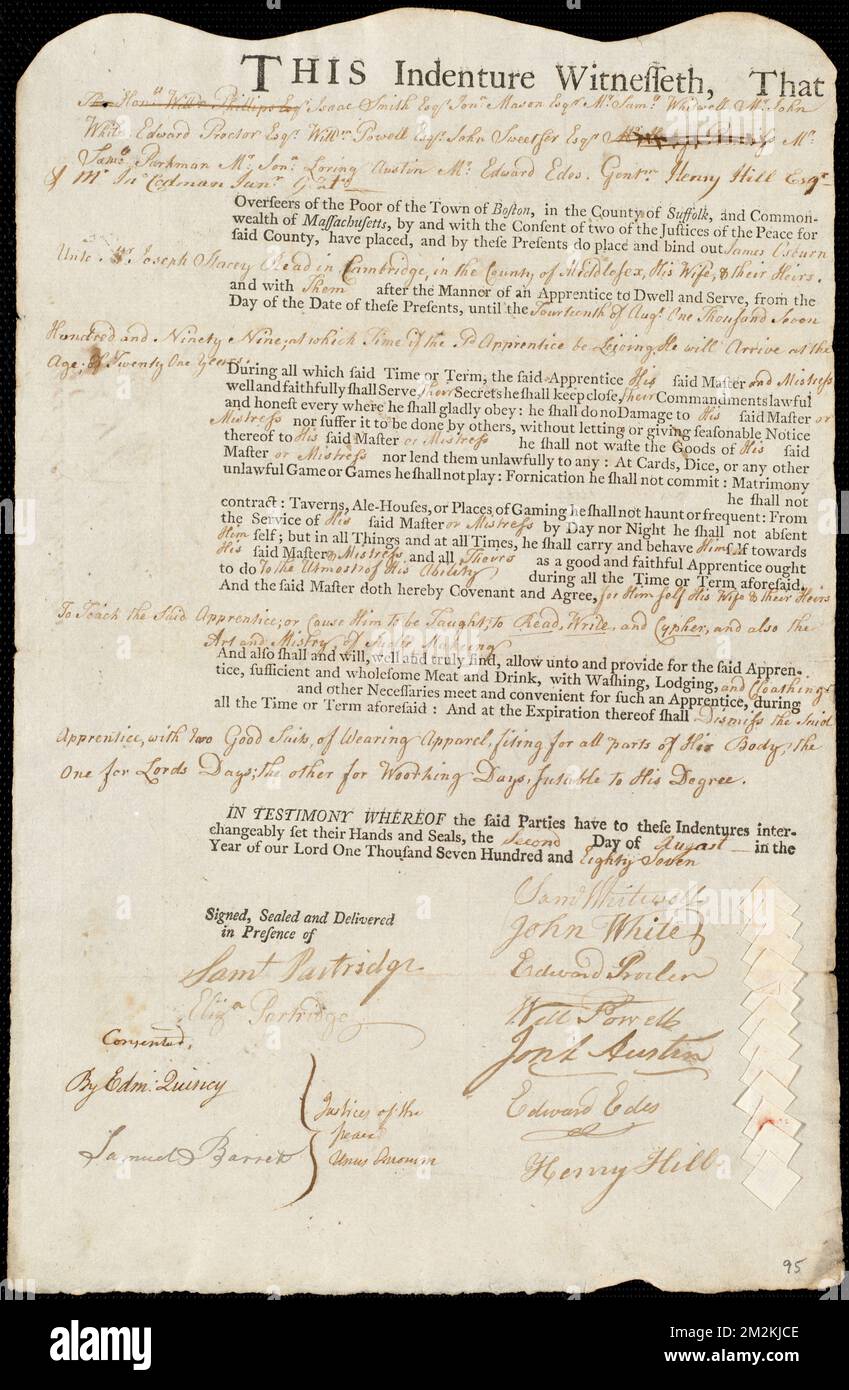 THIS Indenture Witneſſeth, That
The Honᵇˡᵉ Willᵐ Phillips Esqʳ Isaac Smith Esqʳ Jonᵃ Mason Esqʳ Mʳ Samˡ Whitwell Mʳ John
White, Edward Proctor Esqʳ Willᵐ Powell Esqʳ John Sweetser Esqʳ Mʳ
Samˡ Parkman Mʳ Jonᵃ Loring Austin Mʳ Edward Edes. Gentᵐ Henry Hill Esqʳ
& Mʳ Jnᵒ Codman Junʳ
Overſeers of the Poor of the Town of Boſton, in the County of Suffolk, and Common-
wealth of Maſſachuſetts, by and with the Conſent of two of the Juſtices of the Peace for
ſaid County, have placed, and by theſe Preſents do place and bind out James Osburn
Unto Mʳ Joseph Stacey Read in Cambridge, in the County of Middlesex, His Wife, & their Heirs.
and with Them after the Manner of an Apprentice to Dwell and Serve, from the
Day of the Date of theſe Preſents, until the Fourteenth of Augᵗ One Thousand Seven
Hundred and Ninety Nine; at which Time if the Sᵈ Apprentice be Living, He will Arrive at the
Age; of Twenty One Years.
During all which ſaid Time or Term, the ſaid Apprentice His ſaid Maſter and Mistress
well and faithfully ſhall Serve, Their Secrets he ſhall keep cloſe, their Commandments lawful
and honeſt every where he ſhall gladly obey: he ſhall do no Damage to His ſaid Maſter or
Mistress nor ſuffer it to be done by others, without letting or giving ſeaſonable Notice
thereof to His ſaid Maſter or Mistress he ſhall not waſte the Goods of His ſaid
Maſter or Mistress nor lend them unlawfully to any: At Cards, Dice, or any other
unlawful Game or Games he ſhall not play: Fornication he ſhall not commit: Matrimony
he ſhall not
contract: Taverns, Ale-Houſes, or Places of Gaming he ſhall not haunt or frequent: From
the Service of His ſaid Maſter or Mistress by Day nor Night he ſhall not abſent
Him ſelf; but in all Things and at all Times, he ſhall carry and behave Him ſelf towards
His ſaid Maſter & Mistress, and all Theirs as a good and faithful Apprentice ought
to do To the Utmost of His Ability during all the Time or Term aforeſaid.
And the ſaid Maſter doth hereby Covenant and Agree, for Him self His Wife & their Heirs
To Teach the Said Apprentice; or Cause Him to be Taught; to Read, Write, and Cypher, and also the
Art and Mistry, of Making
And alſo ſhall and will, well and truly find, allow unto and provide for the ſaid Appren-
tice, ſufficient and wholeſome Meat and Drink, with Waſhing, Lodging, and Cloathing
and other Neceſſaries meet and convenient for ſuch an Apprentice, during
all the Time or Term aforeſaid: And at the Expiration thereof ſhall Dismiss the Said
Apprentice, with two Good Suits, of Wearing Apparel, fiting for all parts of His Body, the
One for Lords Days; the other for Woorking Days, sutable to His Degree.
IN TESTIMONY WHEREOF the ſaid Parties have to theſe Indentures inter-
changeably ſet their Hands and Seals, the Second Day of August in the
Year of our Lord One Thouſand Seven Hundred and Eighty Seven
Signed, Sealed and Delivered
in Preſence of
Samˡ Partridge
Elizᵃ Partridge
Consented,
By Edmᵈ Quincy
Samuel Barrett
Justices of the
peace
Unus Quorum
Samˡ Whitwell
John White
Edward Procter
Will Powell
Jonᵃ L Austin
Edward Edes
Henry Hill
95
alamy
Image ID: 2M2KJCE
www.alamy.com